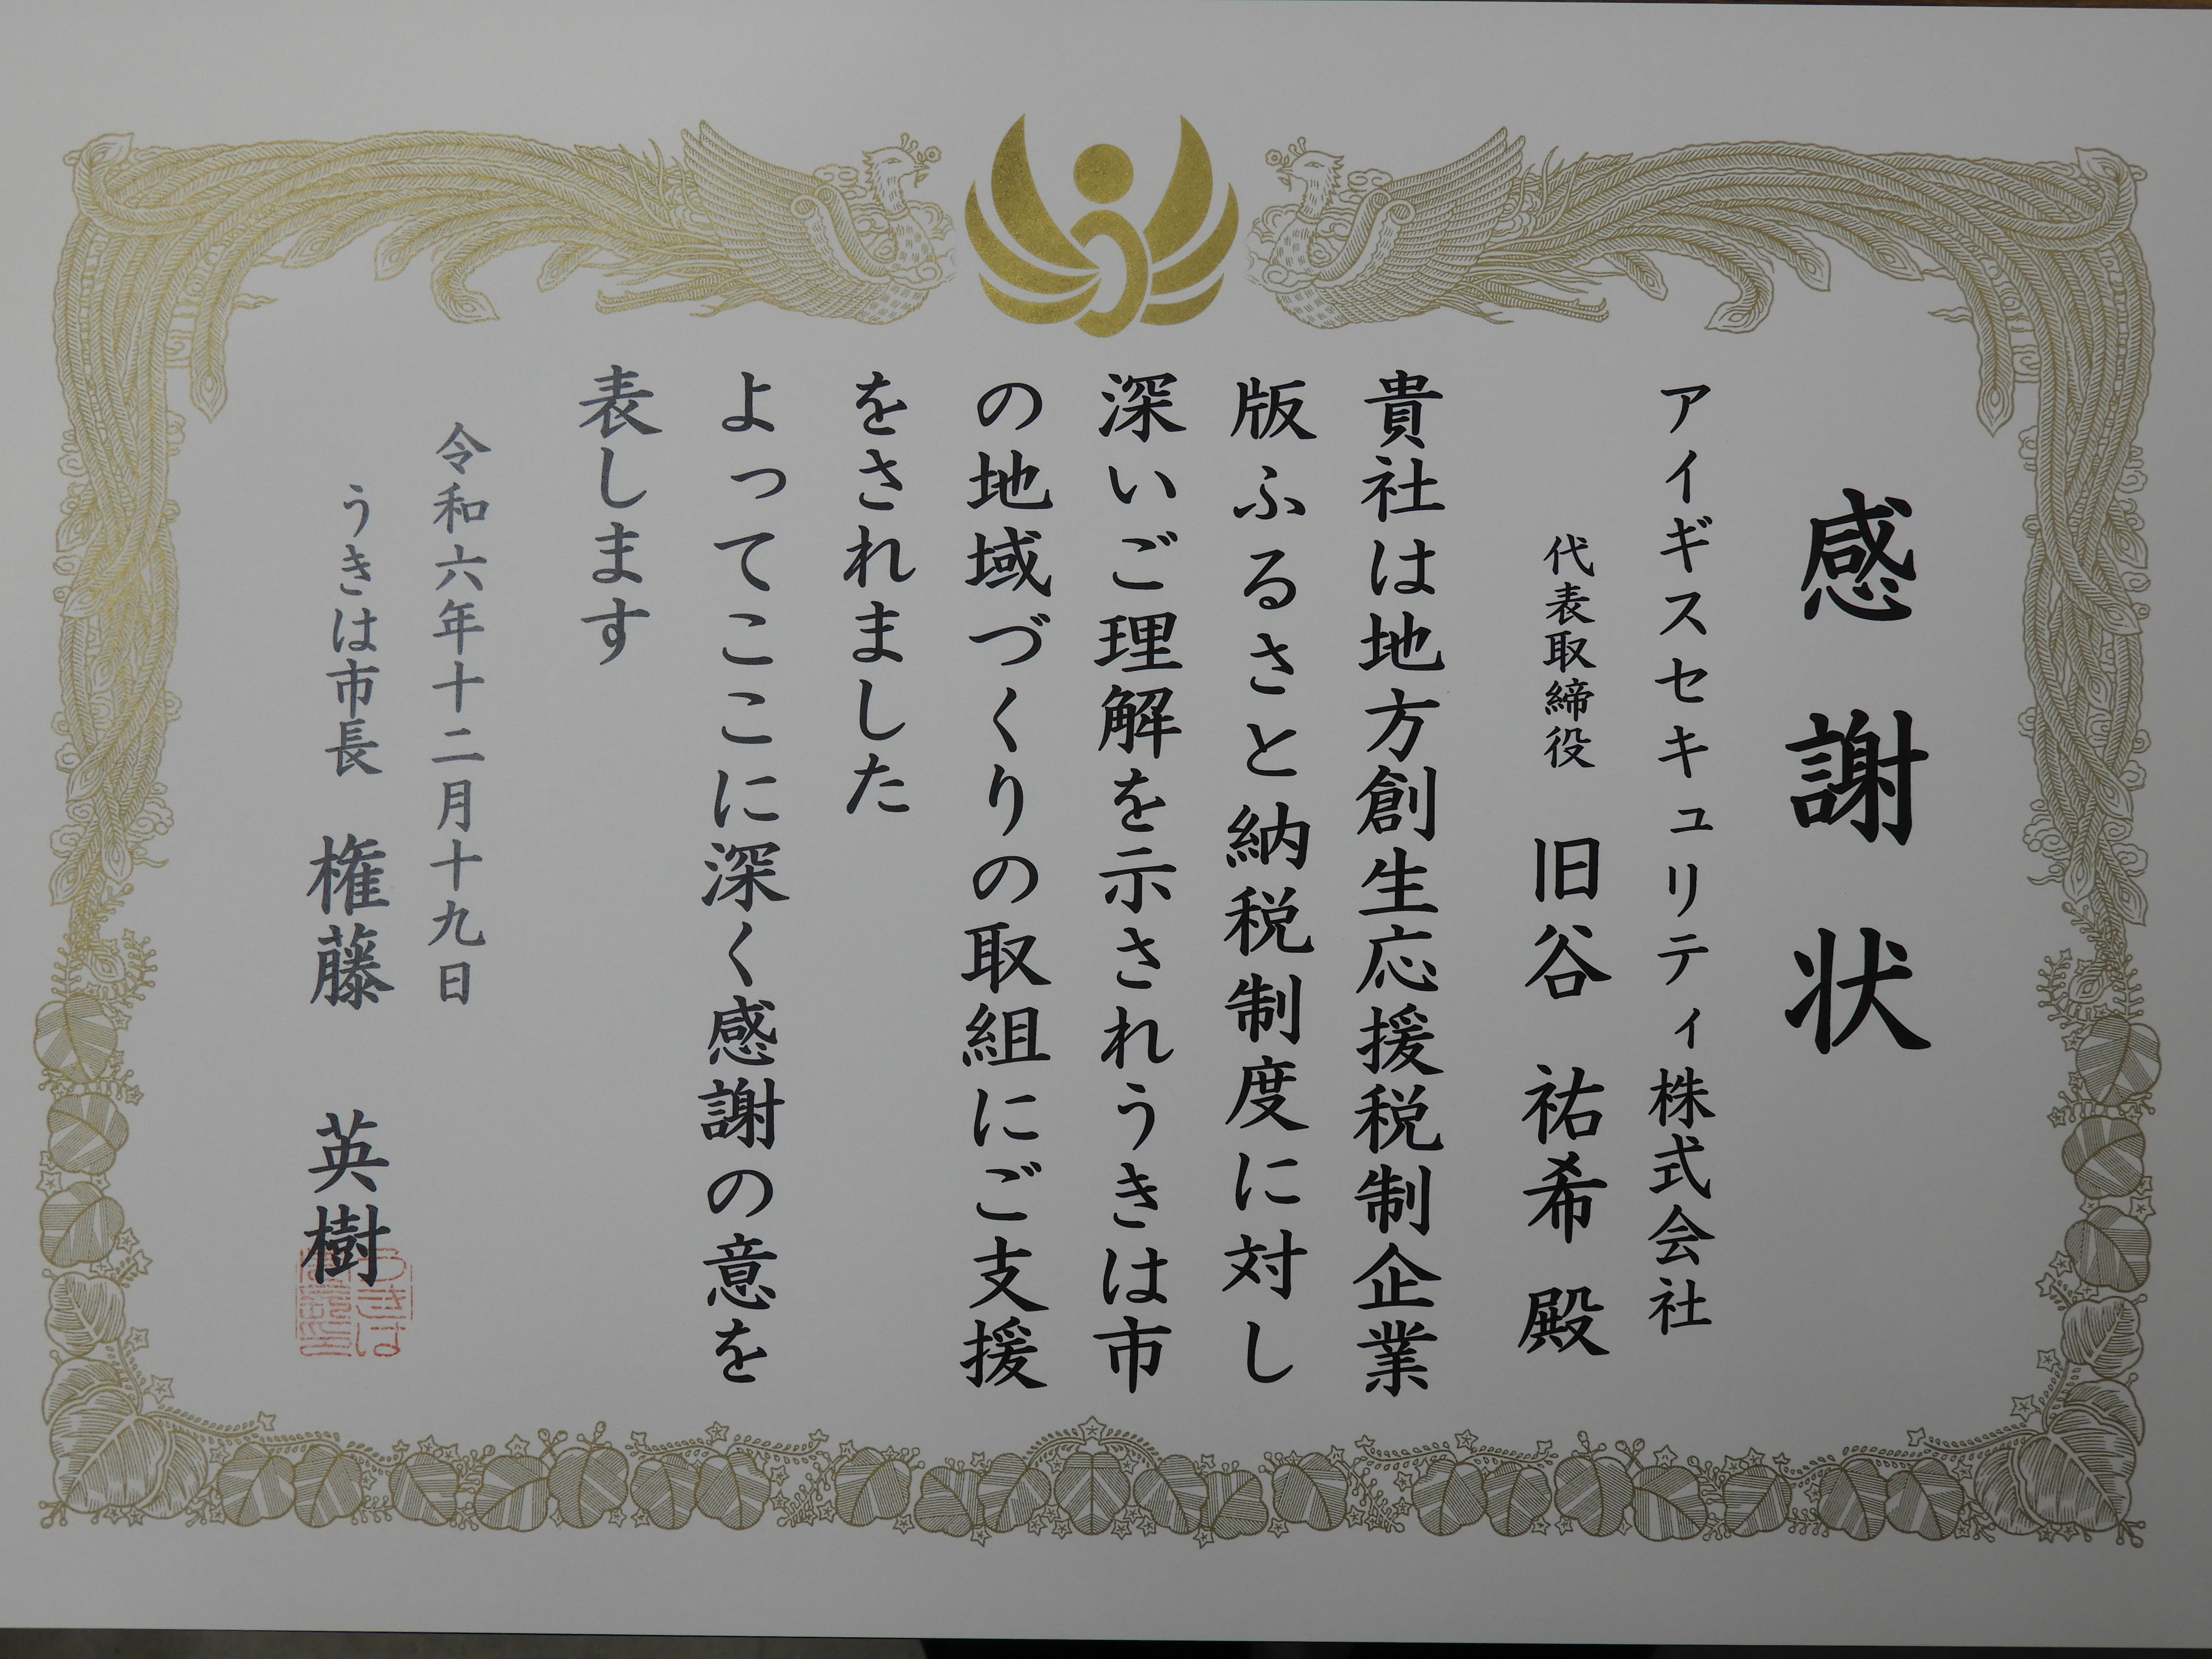 感謝状
アイギスセキュリティ株式会社
代表取締役 旧谷 祐希 殿
貴社は地方創生応援税制企業
版ふるさと納税制度に対し
深いご理解を示されうきは市
の地域づくりの取組にご支援
をされました
よってここに深く感謝の意を
表します
令和六年十二月十九日
うきは市長 権藤 英樹
うきは